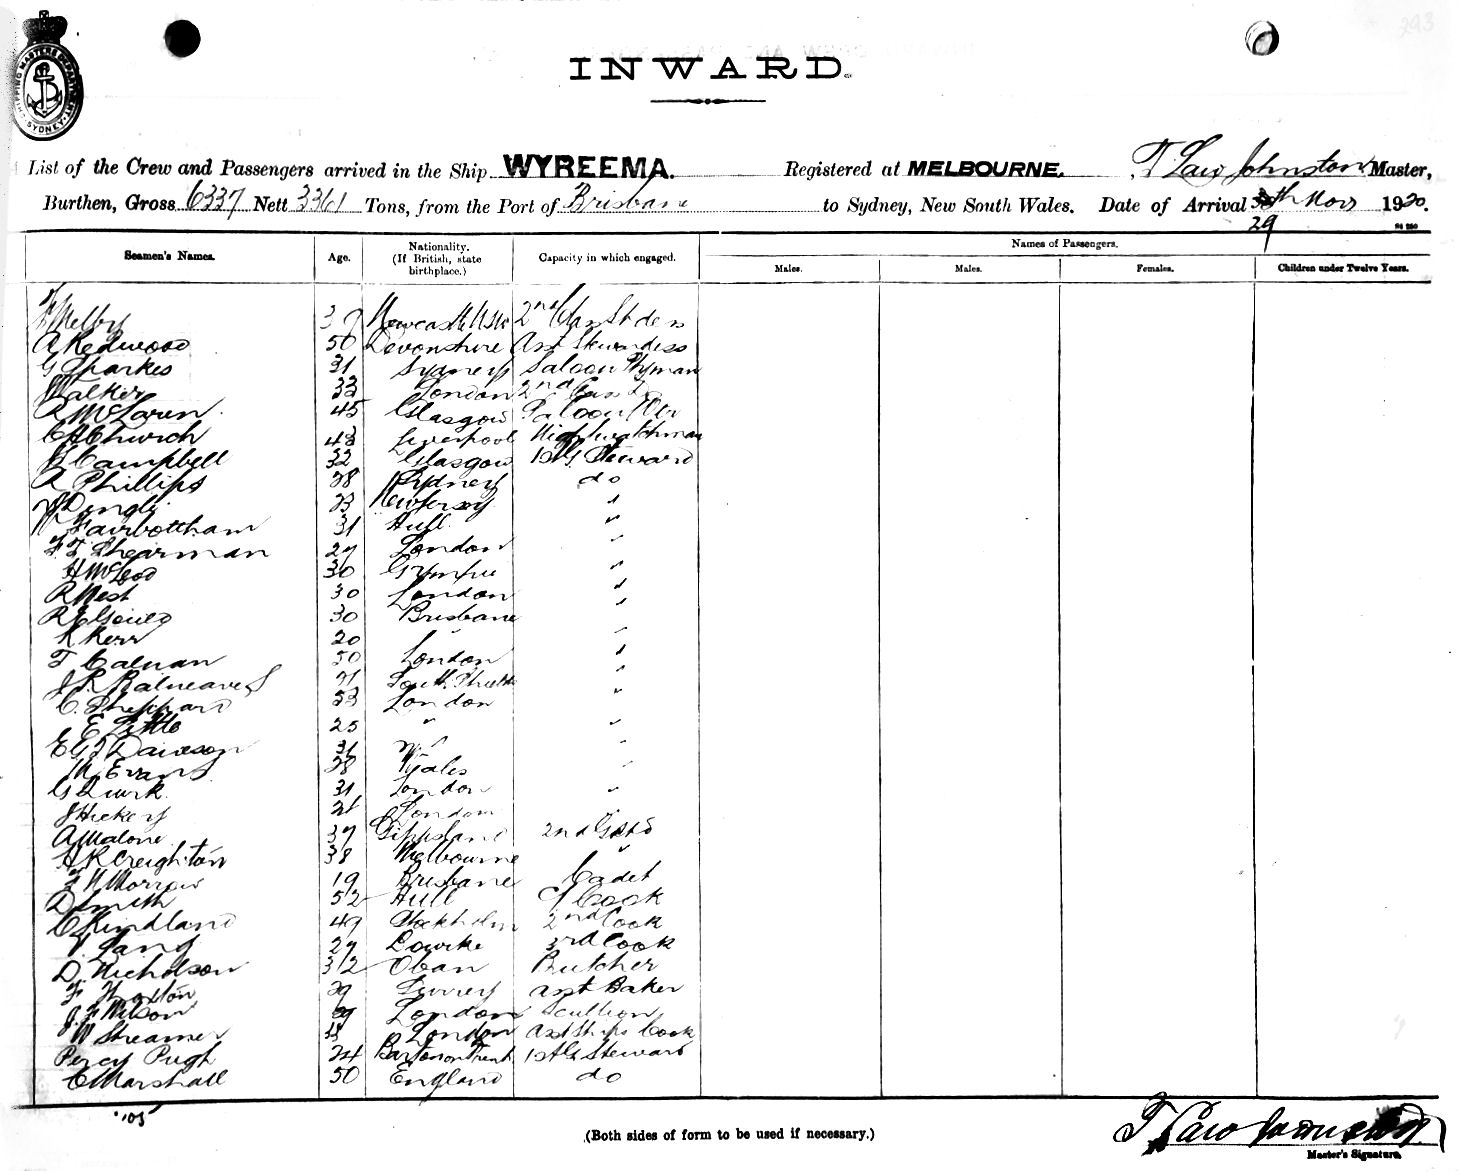 INWARD.
SHIPPING MASTER'S DEPARTMENT SYDNEY
List of the Crew and Passengers arrived in the Ship WYREEMA. Registered at MELBOURNE. T Law Johnston Master,
Burthen, Gross 6337 Nett 3361 Tons, from the Port of Brisbane to Sydney, New South Wales. Date of Arrival 29th Novr 1920.
Seamen's Names. Age. Nationality. (If British, state birthplace.) Capacity in which engaged. Names of Passengers.
Males. Males. Females. Children under Twelve Years.
Melby 39 Newcastle 2nd Class
A Redwood 50 Devonshire Asst Stewardess
G Sparkes 31 Sydney Saloon
Walker 33 London 2nd
R McLaren 45 Glasgow Saloon
C H Church 43 Liverpool Nightwatchman
J Campbell 32 Glasgow 1st G Steward
A Phillips 28 Sydney do
W Dingli 23 New Jersey "
W Fairbottham 31 Hull "
F T Shearman 27 London "
H McLeod 30 Gympie "
R West 30 London "
R E Gould 30 Brisbane "
K Kerr 20 " "
T Calnan 50 London "
J S Balneaves 21 South Shields "
C. Sheppard 53 London "
E Little 25 " "
E G J Dawson 31 "
M Evans 28 Wales "
G Quirk 31 London "
J Hickey 21 London "
A Malone 37 Gippsland 2nd
H R Creighton 38 Melbourne "
F N Morrow 19 Brisbane Cadet
D Smith 52 Hull Cook
C Rindland 49 Stockholm 2nd Cook
Lang 27 3rd Cook
D. Nicholson 32 Oban Butcher
F Thoxton 29 Surrey Asst Baker
J F Wilson 39 London Scullion
W Streamer London Asst Ships Cook
Percy Pugh 24 Barton on Trent 1st G Steward
C Marshall 50 England do
"105"
(Both sides of form to be used if necessary.)
T Law Johnston
Master's Signature.